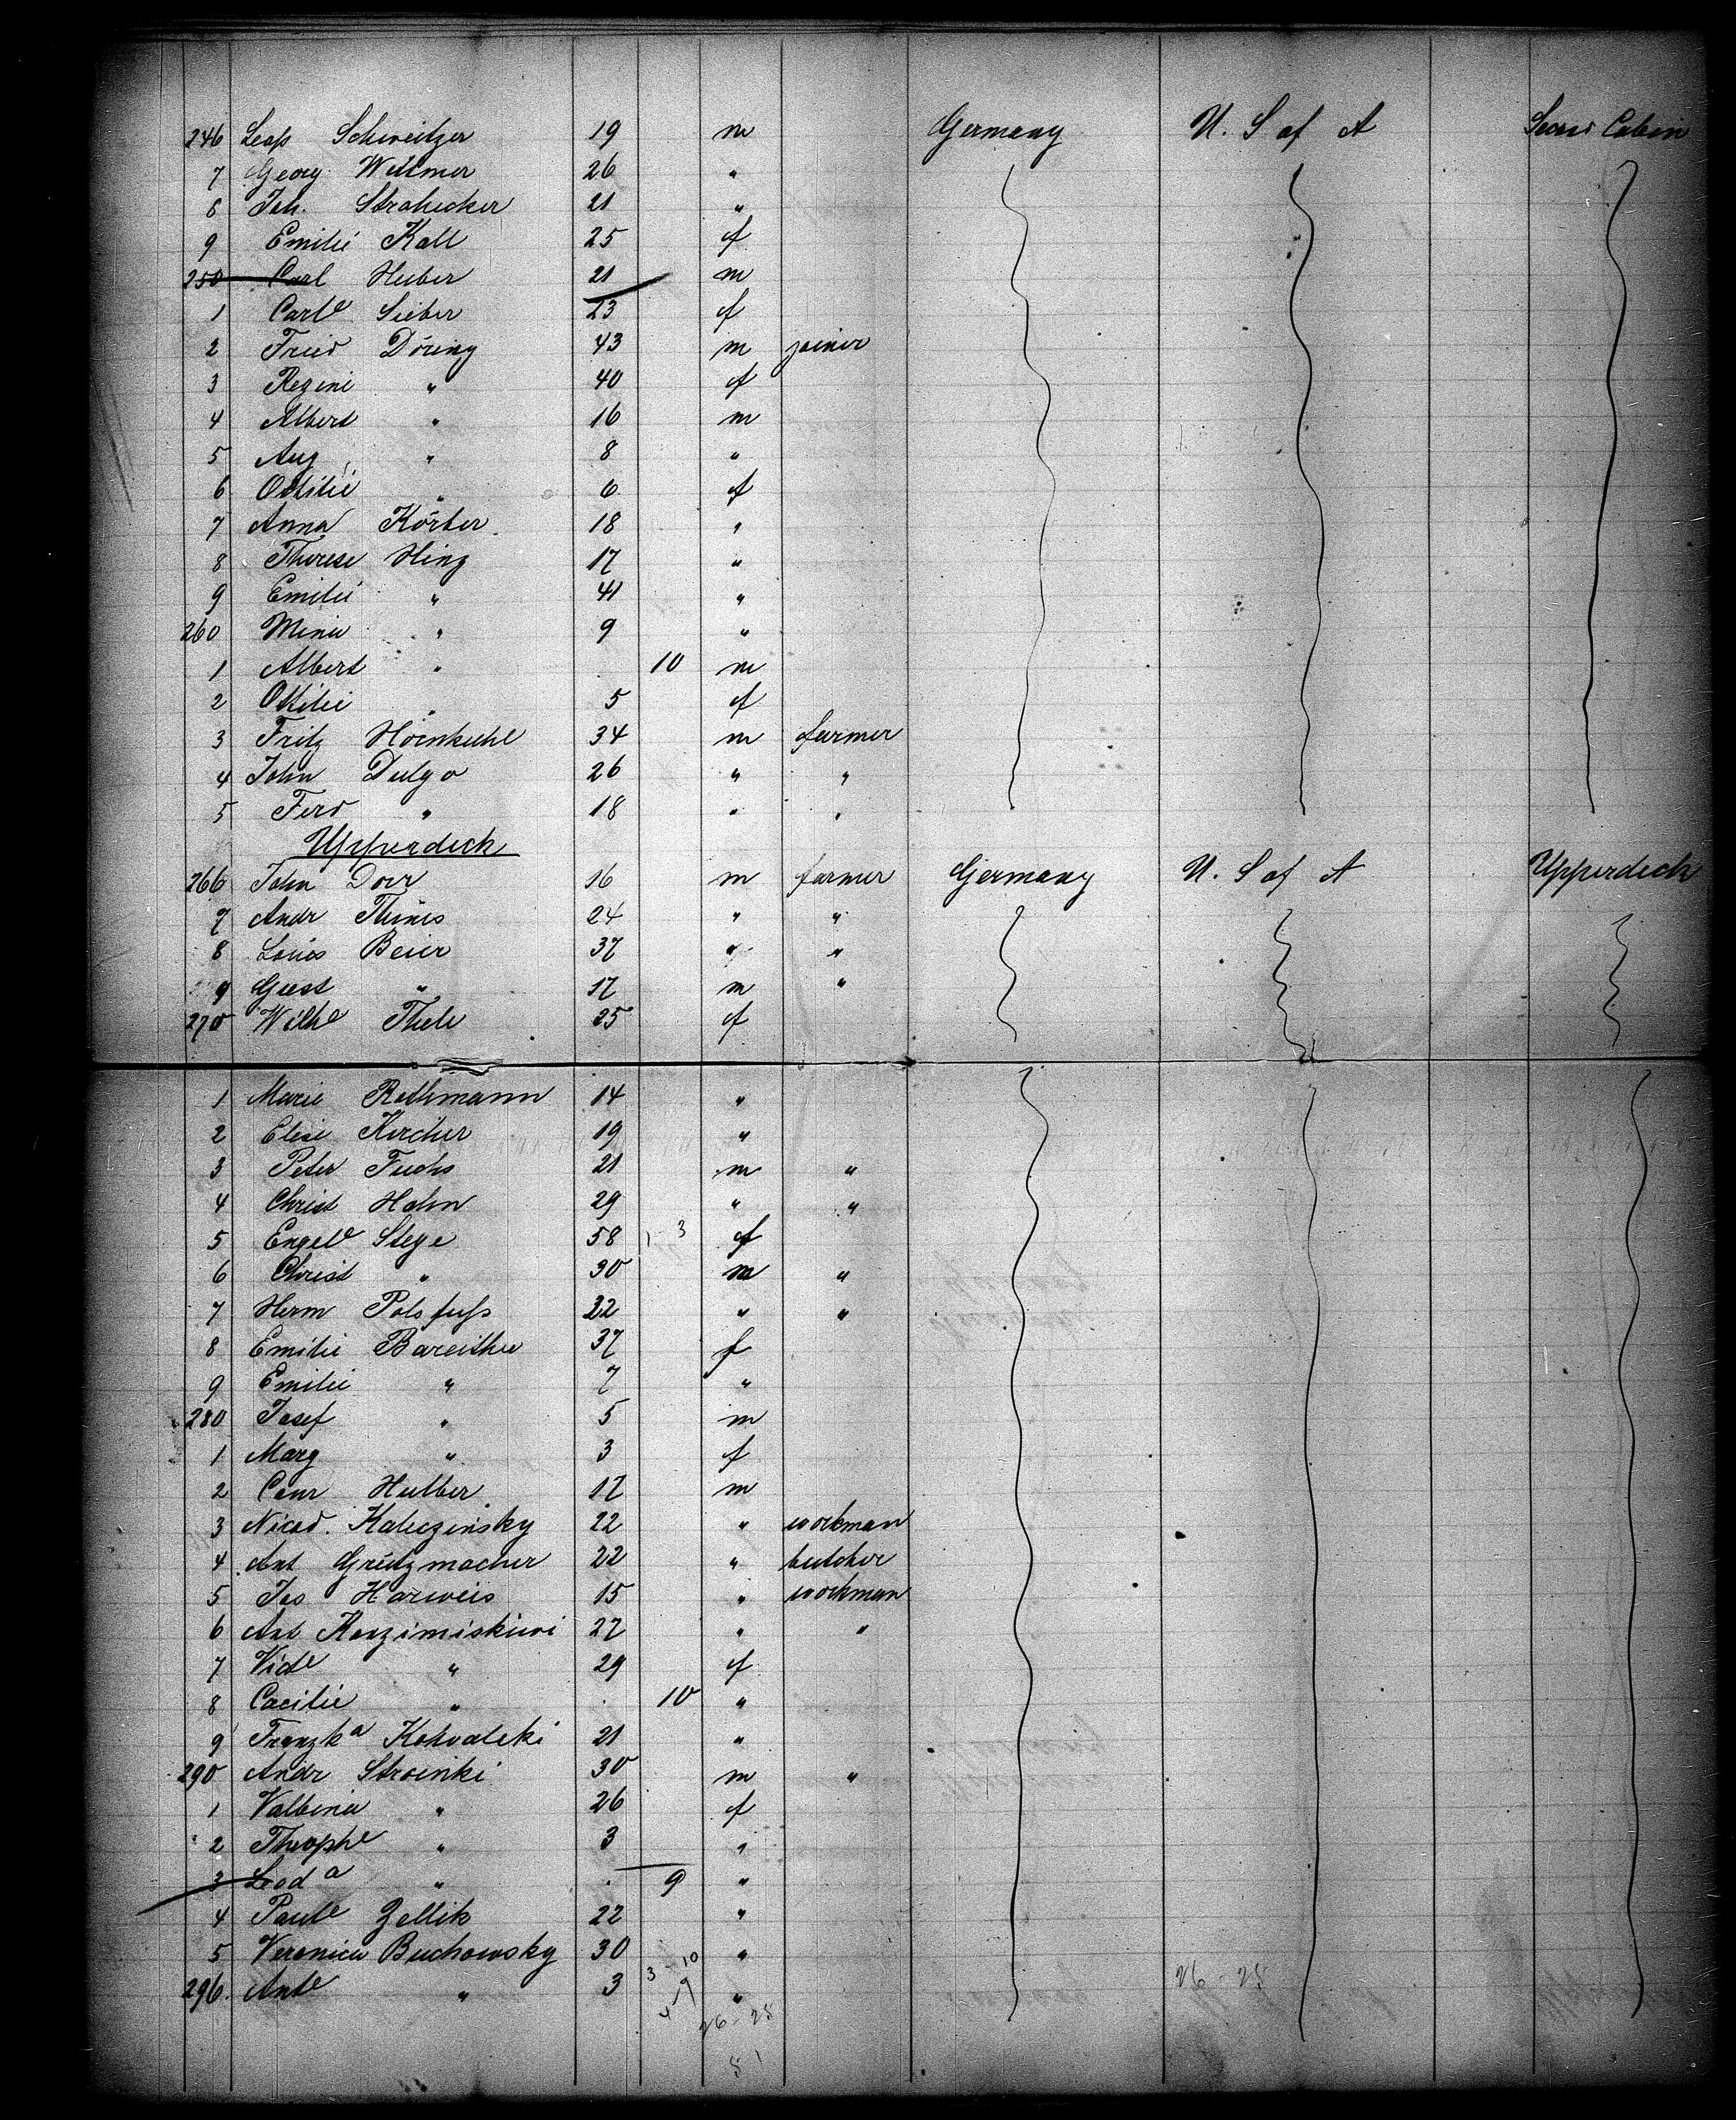 246 Leop Schweitzer 19 m Germany U. S of A Second Cabin
7 Georg Wittmer 26 "
8 Joh. Strohecker 21 "
9 Emilie Kall 25 f
250 Carl Huber 21 m
1 Carle Sieber 23 f
2 Fried Döring 43 m joiner
3 Regini " 40 f
4 Albert " 16 m
5 Aug " 8 "
6 Ottilie " 6 f
7 Anna Körber 18 "
8 Therese Hinz 17 "
9 Emilie " 41 "
260 Minie " 9 "
1 Albert " 10 m
2 Ottilie " 5 f
3 Fritz Hörnkuhl 34 m farmer
4 John Dulgo 26 " "
5 Ferd " 18 " "
Upperdeck
266 John Dorr 16 m farmer Germany U. S of A Upperdeck
7 Andr Thines 24 " "
8 Louis Beier 37 " "
9 Gust " 17 m "
270 Wilhe Thele 25 f
1 Marie Rothmann 14 "
2 Elise Kircher 19 "
3 Peter Fuchs 21 m "
4 Christ Hahn 29 " "
5 Engele Stege 58 f
6 Christ " 30 m "
7 Herm Polsfuss 22 " "
8 Emilie Bareithe 37 f
9 Emilie " 7 "
280 Josef " 5 m
1 Marg " 3 f
2 Conr Hulber 17 m
3 Nicod. Kaluczinsky 22 " workman
4 Ant Grützmacher 22 " butcher
5 Jos Harweis 15 " workman
6 Ant Kanzimiskiwi 27 " "
7 Vide " 29 f
8 Cacilie " 10 "
9 Franzka Kohvalski 21 "
290 Andr Stroinki 30 m "
1 Valbina " 26 f
2 Theophe " 3 "
3 Leoda " 9 "
4 Paule Zellik 22 "
5 Veronica Buchowsky 30 "
296. Ante " 3 "
3 - 10
4 - 9
26 - 25
26 - 25
51